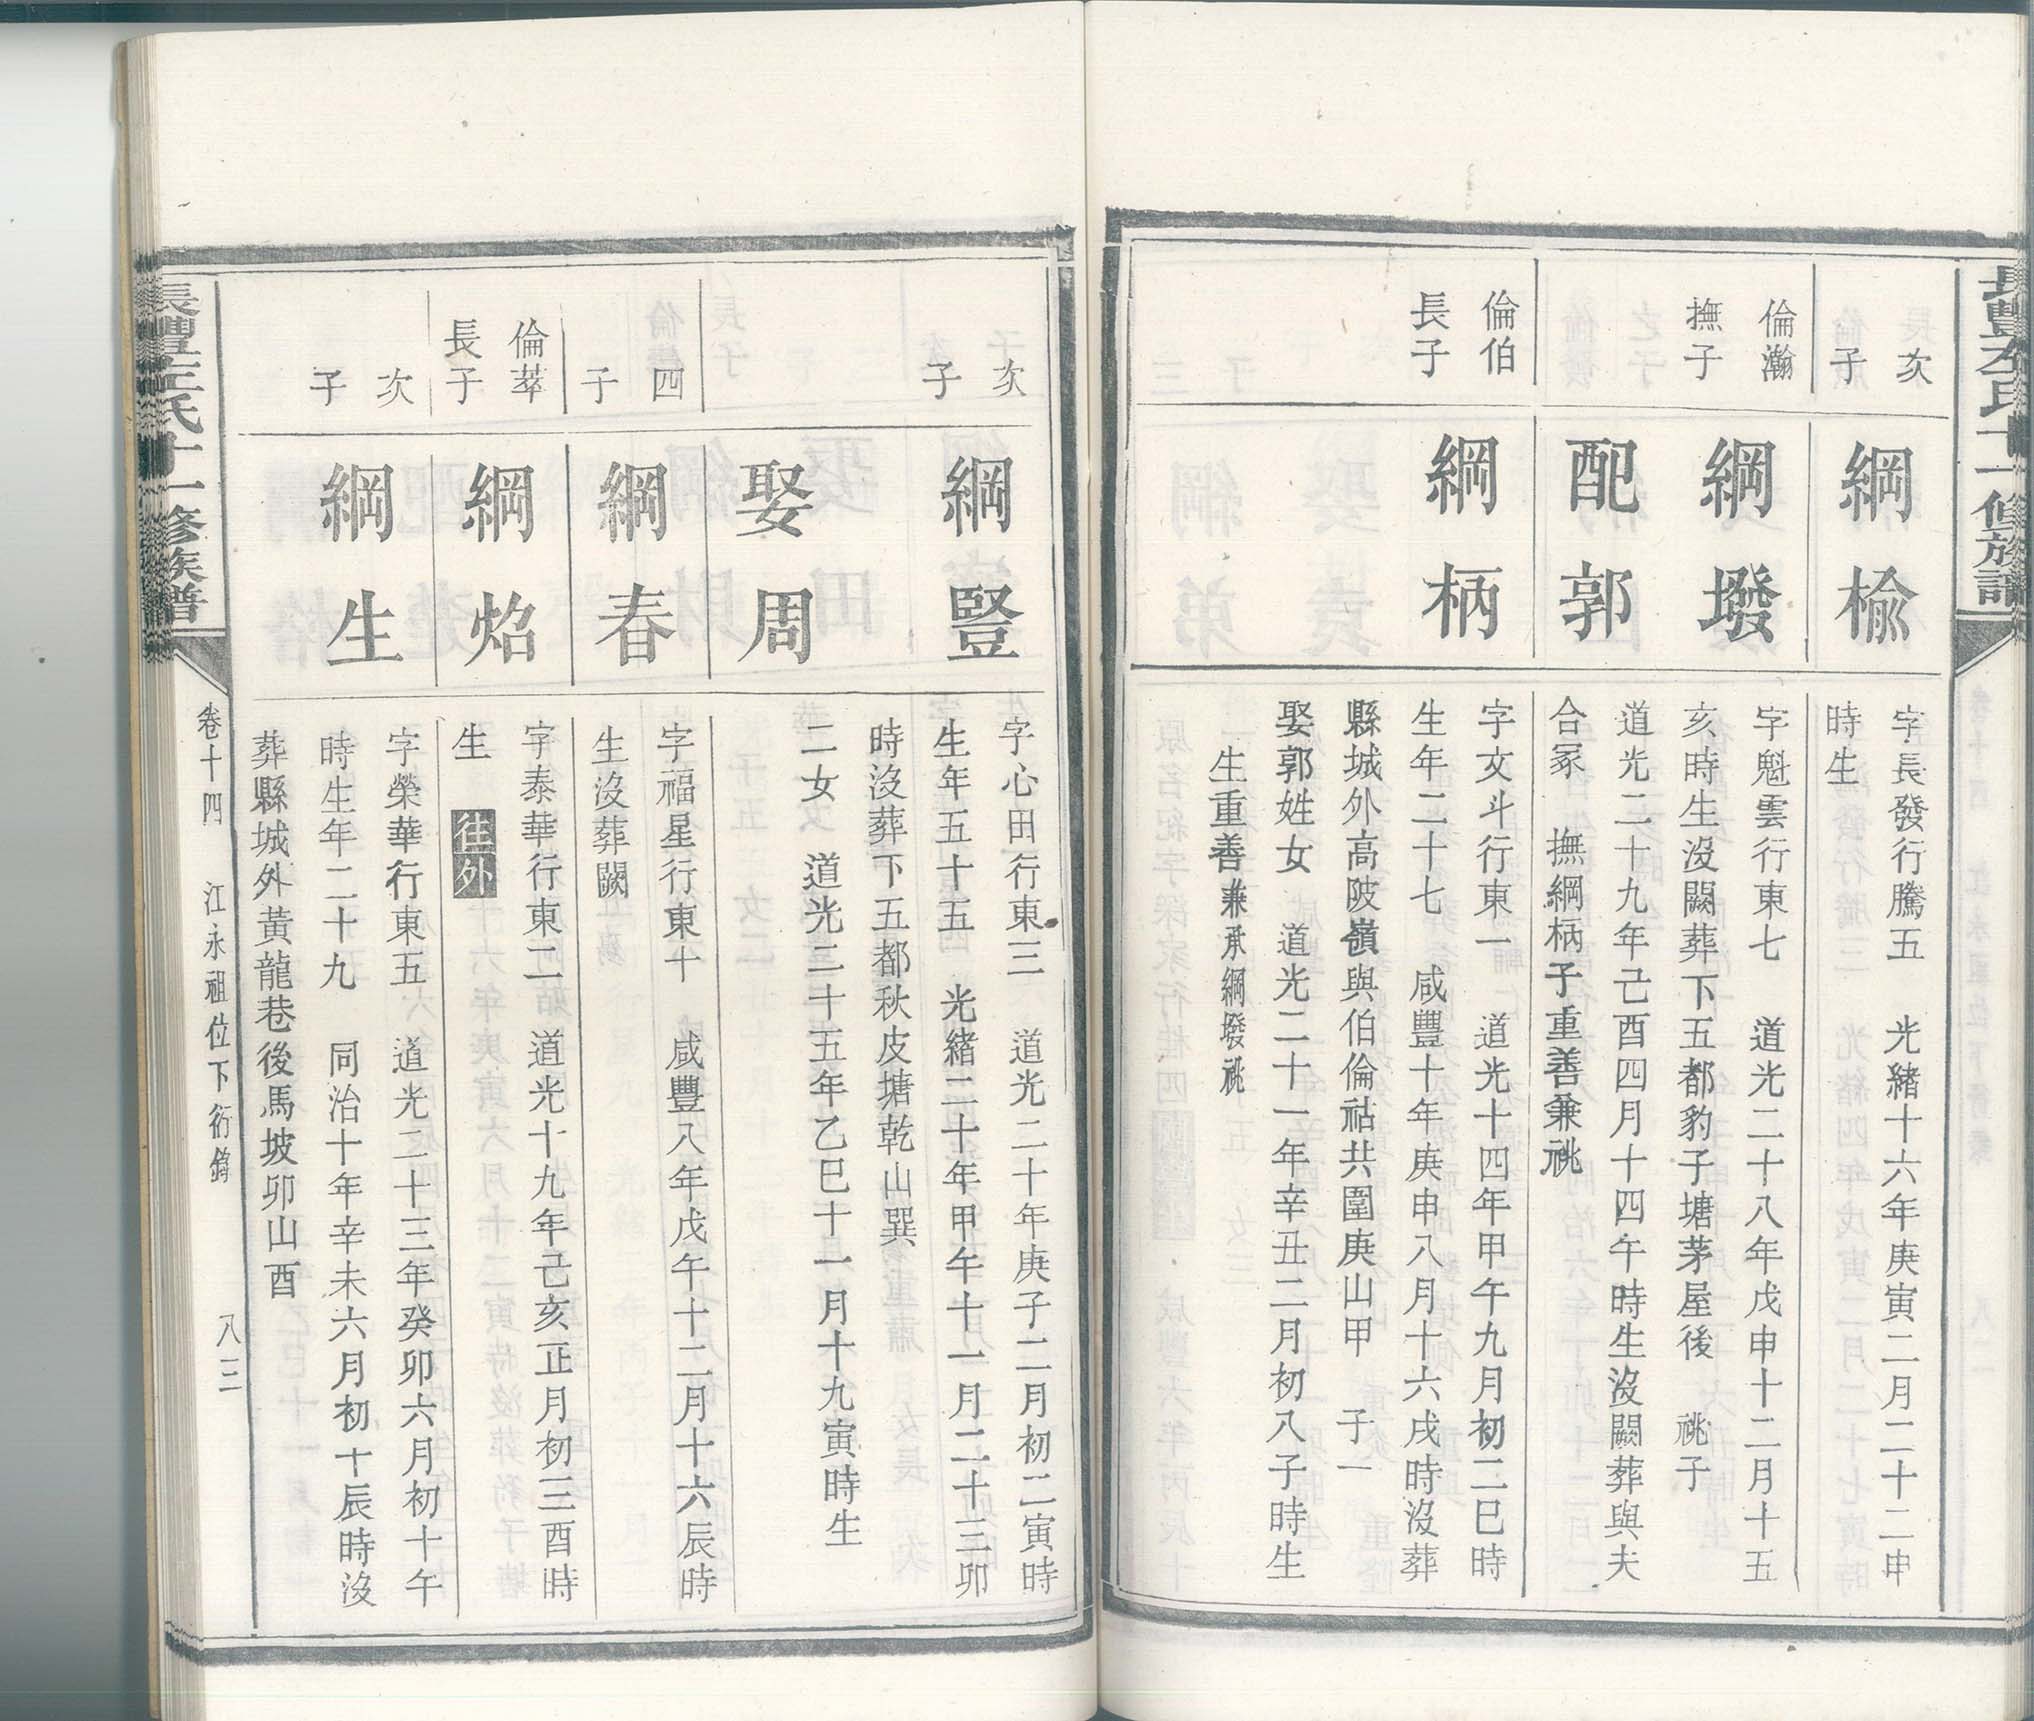 長豐左氏十一修族譜
次
子
綱楡
字長發行騰五　光緒十六年庚寅二月二十二申
時生
倫瀚
撫子
綱墢
字魁雲行東七　道光二十八年戊申十二月十五
亥時生沒闕葬下五都豹子塘茅屋後　祧子
配郭
道光二十九年己酉四月十四午時生沒闕葬與夫
合冢　撫綱柄子重善兼祧
倫伯
長子
綱柄
字文斗行東一　道光十四年甲午九月初二巳時
生年二十七　咸豐十年庚申八月十六戌時沒葬
縣城外高陂嶺與伯倫祜共圍庚山甲　子一
娶郭姓女　道光二十一年辛丑二月初八子時生
生重善兼承綱墢祧
次
子
綱豎
字心田行東三　道光二十年庚子二月初二寅時
生年五十五　光緒二十年甲午十一月二十三卯
時沒葬下五都秋皮塘乾山巽
娶周
二女　道光二十五年乙巳十一月十九寅時生
四
子
綱春
字福星行東十　咸豐八年戊午十二月十六辰時
生沒葬闕
倫萃
長子
綱焰
字泰華行東二　道光十九年己亥正月初三酉時
生　往外
次
子
綱生
字榮華行東五　道光二十三年癸卯六月初十午
時生年二十九　同治十年辛未六月初十辰時沒
葬縣城外黃龍巷後馬坡卯山酉
長豐左氏十一修族譜
卷十四　江永祖位下衍
八三